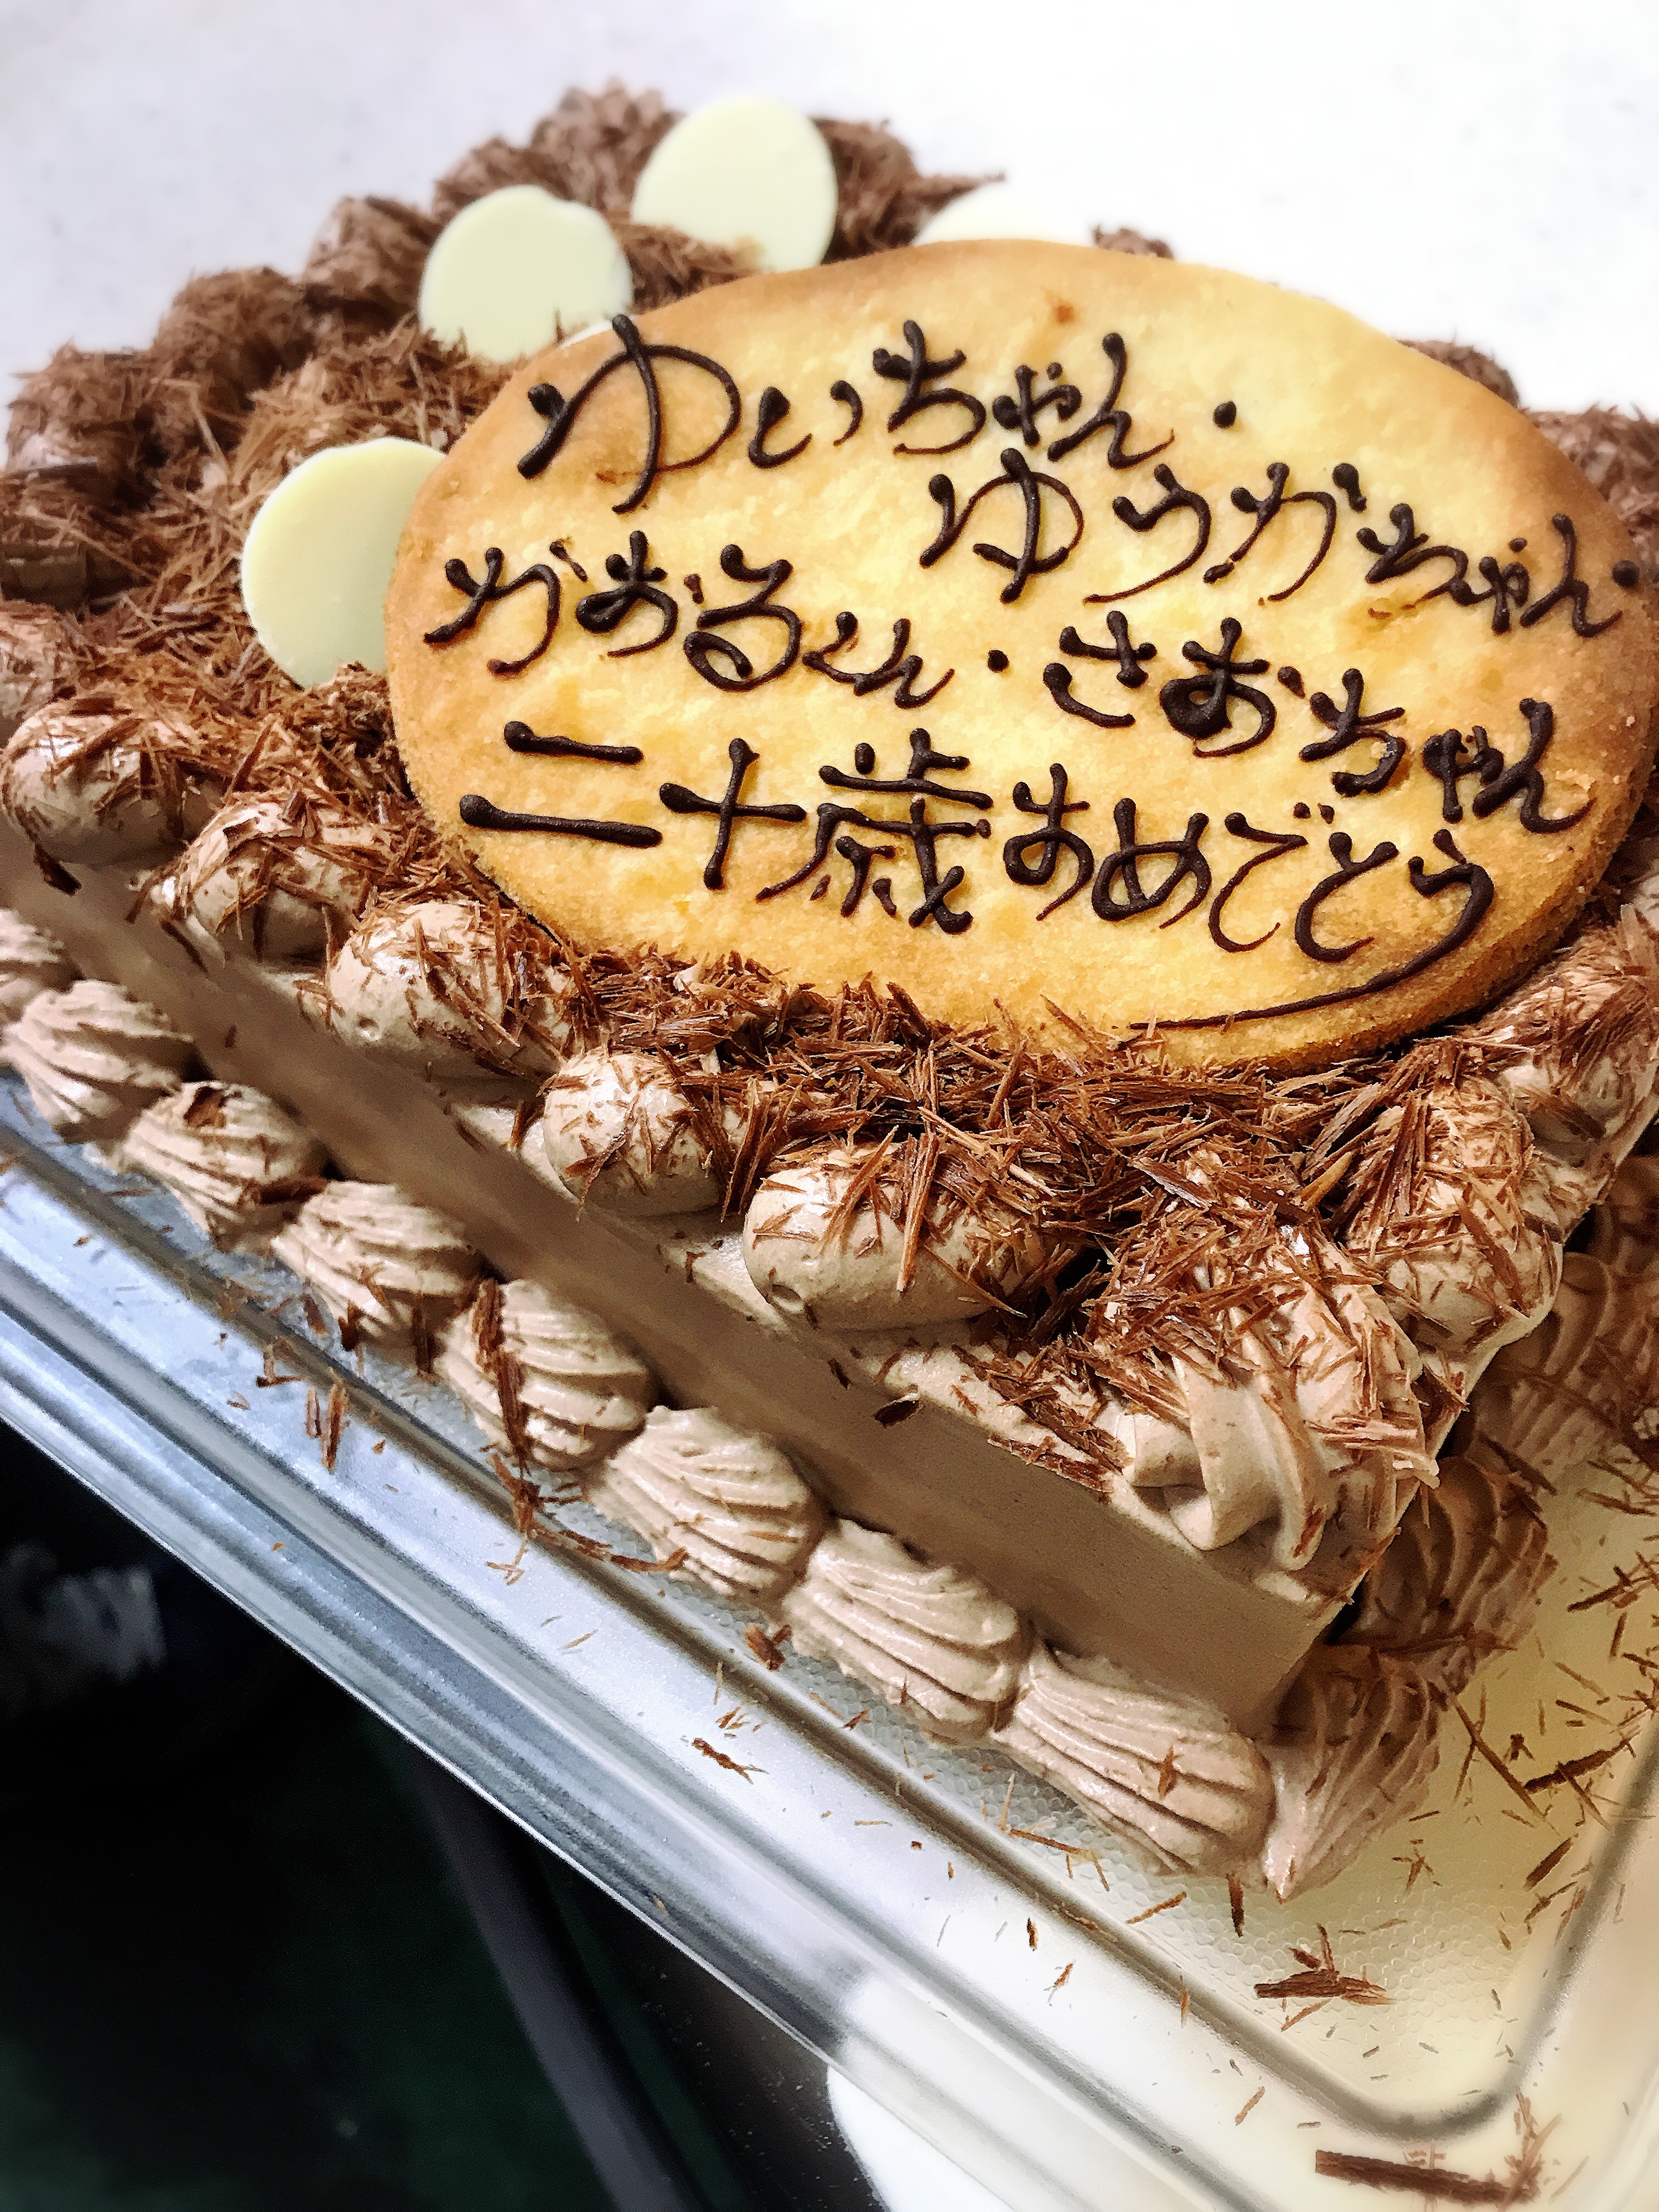 ゆいちゃん・
ゆうがちゃん・
かおるくん・さおちゃん
二十歳おめでとう